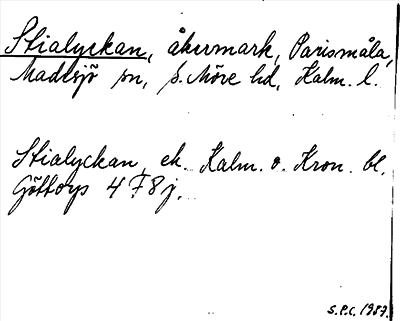 Stialyckan, åkermark, Parismåla,
Madesjö sn, s. Möre hd, Kalm. l.
Stialyckan, ek. Kalm. o. Kron. bl.
Göttorps 4 F 8 j.
S.P.C. 1989.